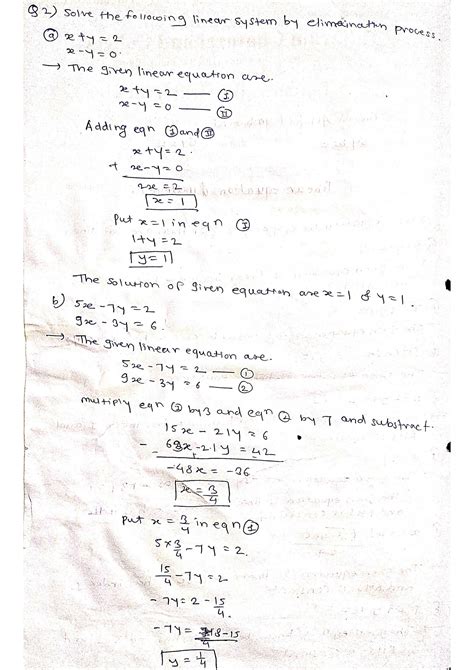 Q2) Solve the following linear system by elimination process.
(a) x+y=2
x-y=0.
→ The given linear equation are.
x+y=2 — (I)
x-y=0 — (II)
Adding eqn (I) and (II)
x+y=2.
+ x-y=0
2x=2
x=1
Put x=1 in eqn (I)
1+y=2
y=1
The solution of given equation are x=1 & y=1.
b) 5x-7y=2
9x-3y=6.
→ The given linear equation are.
5x-7y=2 — (1)
9x-3y=6 — (2)
multiply eqn (1) by 3 and eqn (2) by 7 and substract.
15x-21y=6
- 63x-21y=42
-48x=-36
x=3/4
Put x=3/4 in eqn (1)
5×3/4-7y=2.
15/4-7y=2
-7y=2-15/4.
-7y=8-15/4
y=1/4